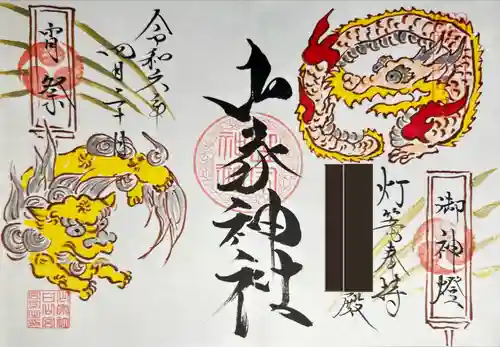 御神燈
灯 奉
殿
山家神社
令和六年
四月二十日
宵祭